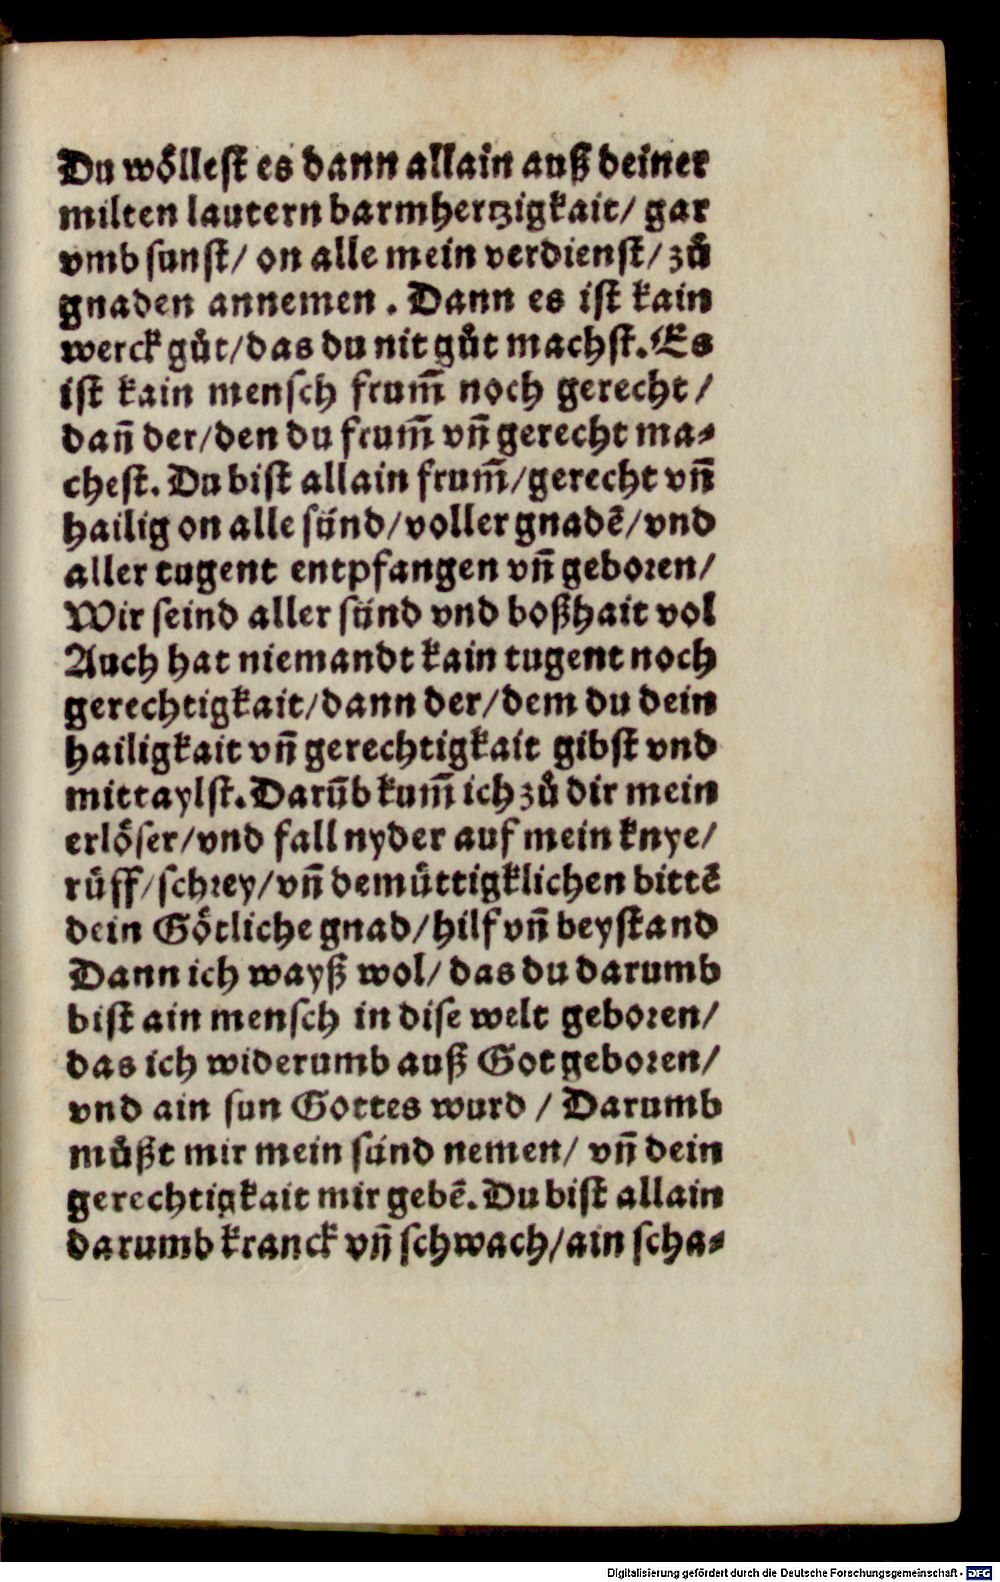 Du wöllest es dann allain auß deiner
milten lautern barmhertzigkait/ gar
vmb sunst/ on alle mein verdienst/ zů
gnaden annemen . Dann es ist kain
werck gůt/das du nit gůt machst. Es
ist kain mensch frum̃ noch gerecht/
dañ der/den du frum̃ vñ gerecht ma⸗
chest. Du bist allain frum̃/gerecht vñ
hailig on alle sünd/voller gnadẽ/vnd
aller tugent entpfangen vñ geboren/
Wir seind aller sünd vnd boßhait vol
Auch hat niemandt kain tugent noch
gerechtigkait/dann der/dem du dein
hailigkait vñ gerechtigkait gibst vnd
mittaylst. Darũb kum̃ ich zů dir mein
erlöser/vnd fall nyder auf mein knye/
růff/schrey/vñ demůttigklichen bittẽ
dein Götliche gnad/hilf vñ beystand
Dann ich wayß wol/ das du darumb
bist ain mensch in dise welt geboren/
das ich widerumb auß Got geboren/
vnd ain sun Gottes wurd / Darumb
můßt mir mein sünd nemen/ vñ dein
gerechtigkait mir gebẽ. Du bist allain
darumb kranck vñ schwach/ain scha⸗
Digitalisierung gefördert durch die Deutsche Forschungsgemeinschaft - DFG